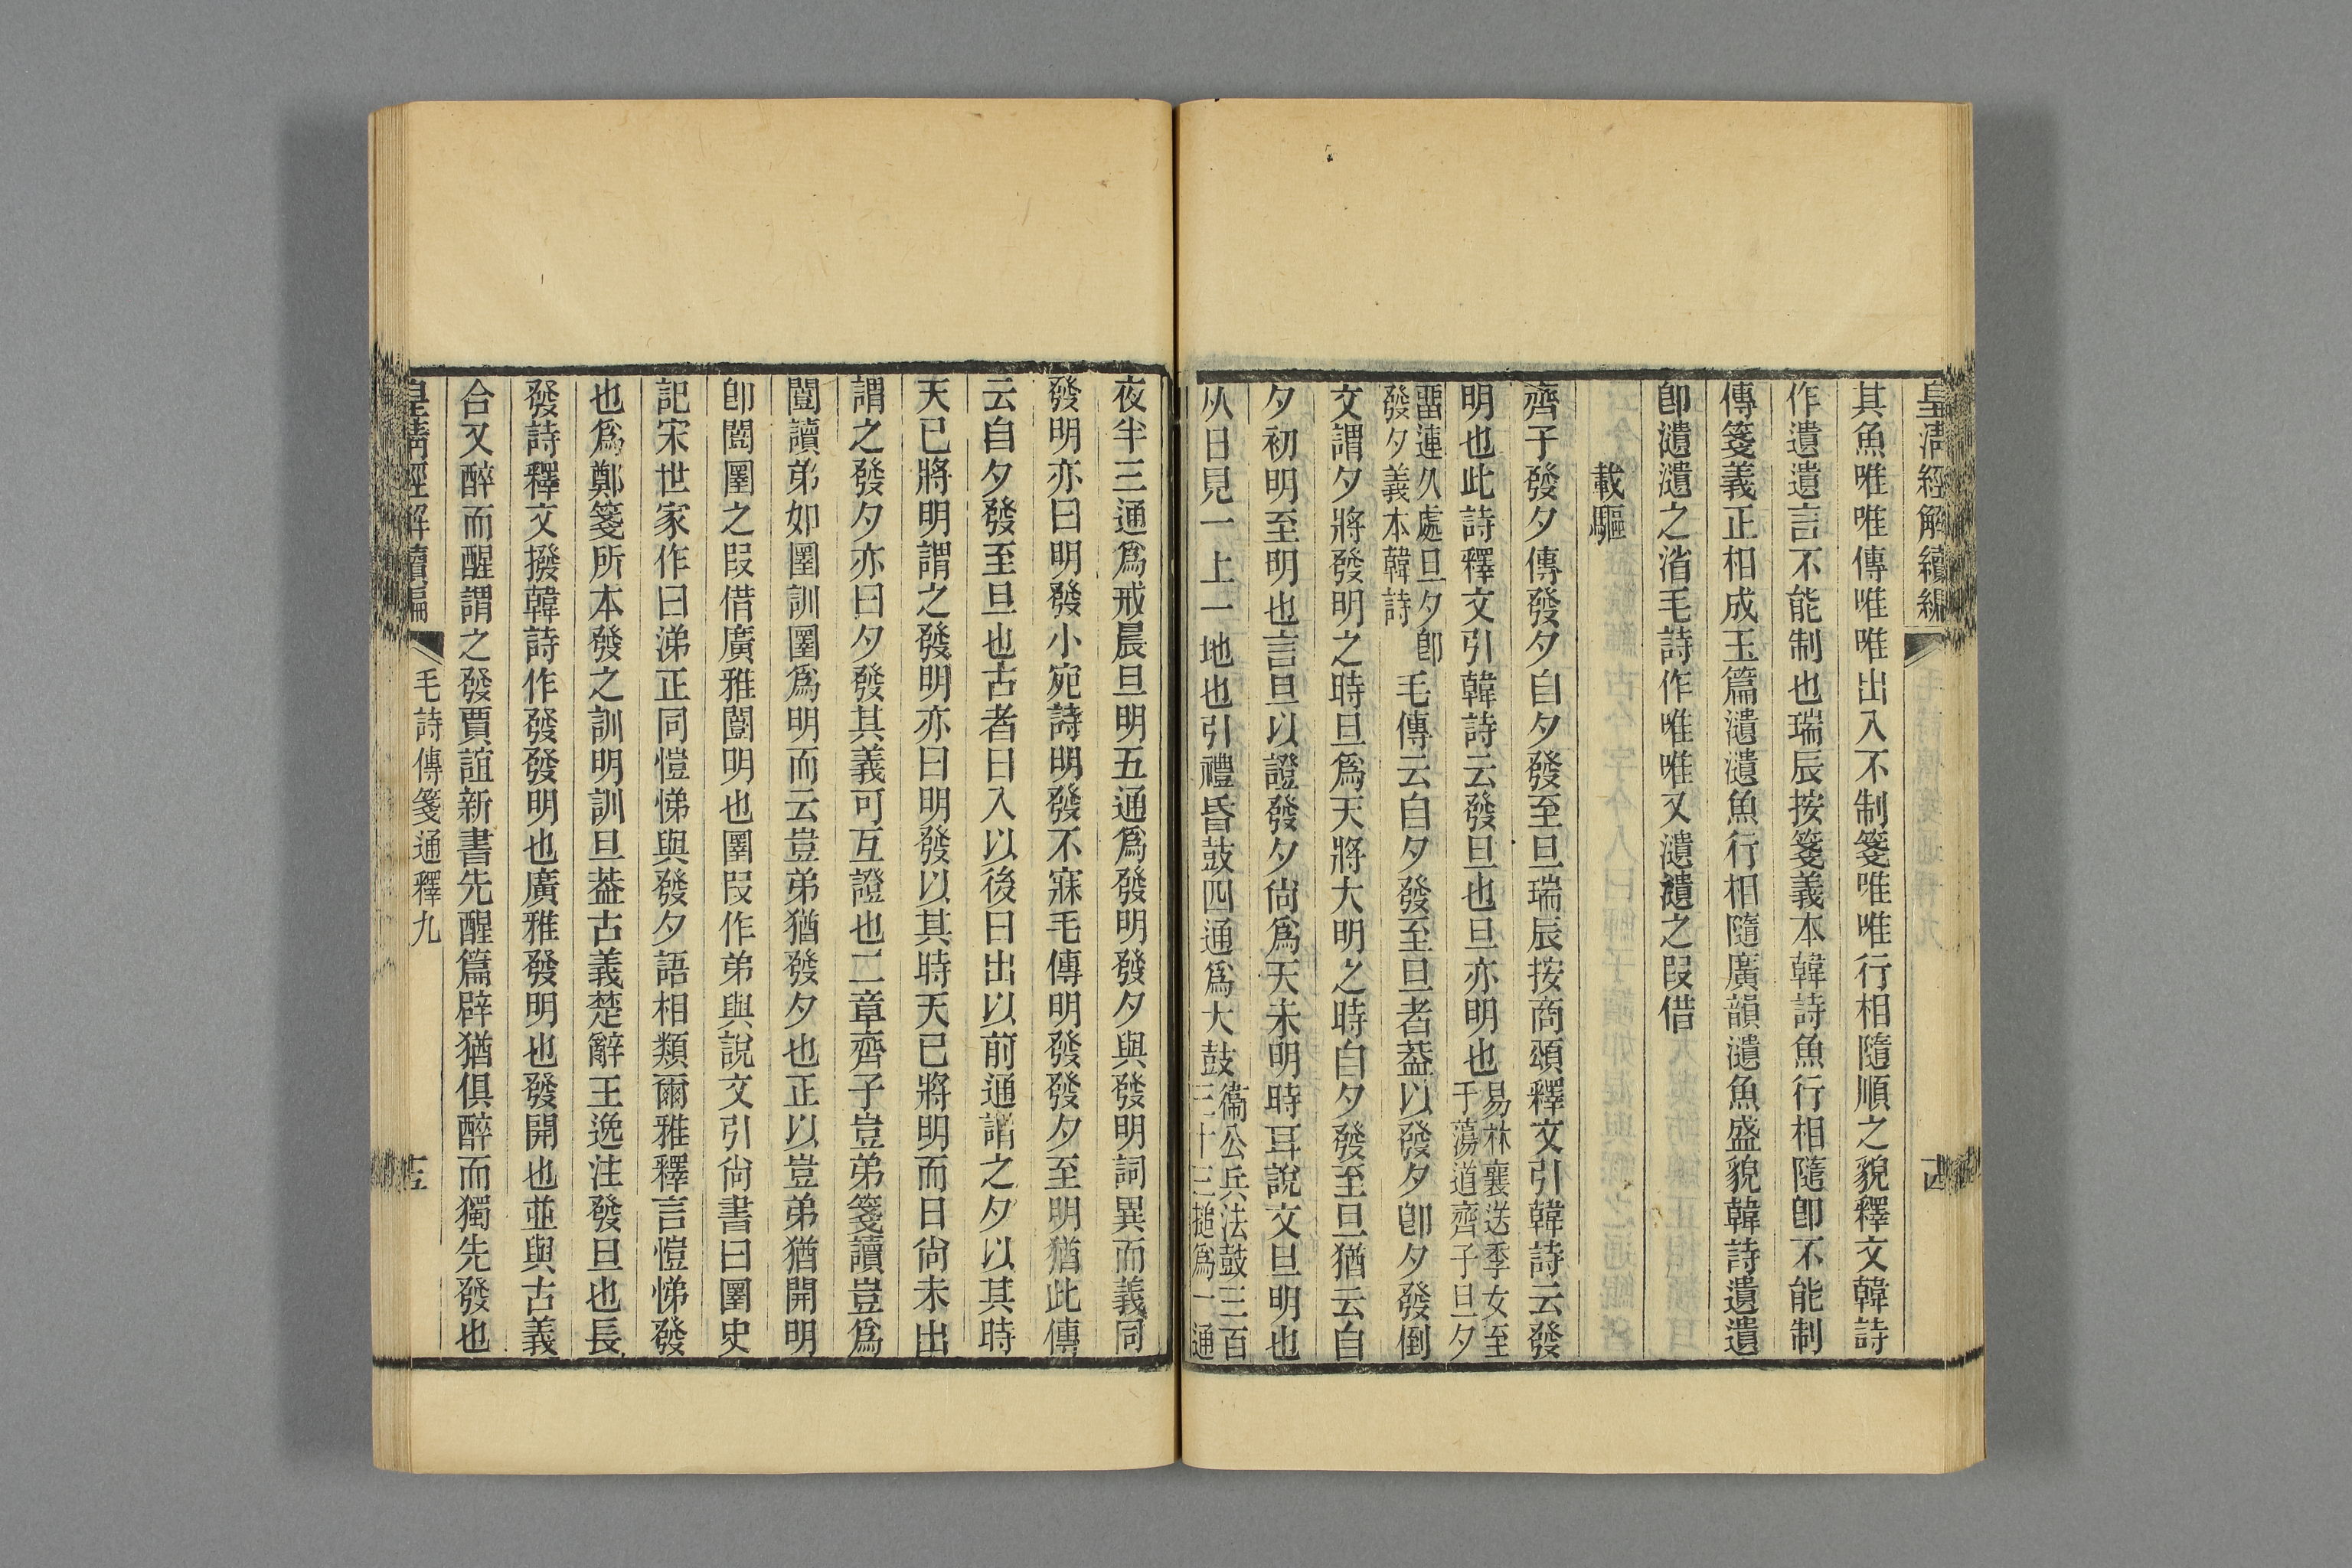 皇清經解續編
其魚唯唯傳唯唯出入不制箋唯唯行相隨順之貌釋文韓詩
作遺遺言不能制也瑞辰按箋義本韓詩魚行相隨卽不能制
傳箋義正相成玉篇瀢瀢魚行相隨廣韻瀢魚盛貌韓詩遺遺
卽瀢瀢之渻毛詩作唯唯又瀢瀢之叚借
載驅
齊子發夕傳發夕自夕發至旦瑞辰按商頌釋文引韓詩云發
明也此詩釋文引韓詩云發旦也旦亦明也易林襄送季女至于蕩道齊子旦夕
畱連久處旦夕卽發夕義本韓詩毛傳云自夕發至旦者葢以發夕卽夕發倒
文謂夕將發明之時旦爲天將大明之時自夕發至旦猶云自
夕初明至明也言旦以證發夕尙爲天未明時耳說文旦明也
从日見一上一地也引禮昏鼓四通爲大鼓衞公兵法鼓三百三十三搥爲一通
夜半三通爲戒晨旦明五通爲發明發夕與發明詞異而義同
發明亦曰明發小宛詩明發不寐毛傳明發發夕至明猶此傳
云自夕發至旦也古者日入以後日出以前通謂之夕以其時
天已將明謂之發明亦曰明發以其時天已將明而日尙未出
謂之發夕亦曰夕發其義可互證也二章齊子豈弟箋讀豈爲
闓讀弟如圛訓圛爲明而云豈弟猶發夕也正以豈弟猶開明
卽闓圛之叚借廣雅闓明也圛叚作弟與說文引尙書曰圛史
記宋世家作曰涕正同愷悌與發夕語相類爾雅釋言愷悌發
也爲鄭箋所本發之訓明訓旦葢古義楚辭王逸注發旦也長
發詩釋文撥韓詩作發發明也廣雅發明也發開也並與古義
合又醉而醒謂之發賈誼新書先醒篇辟猶俱醉而獨先發也
皇清經解續編
毛詩傳箋通釋九